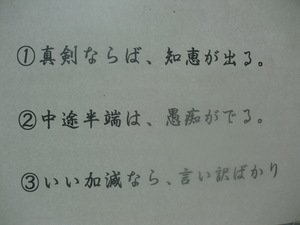 ①真剣ならば、知恵が出る。
②中途半端は、愚痴がでる。
③いい加減なら、言い訳ばかり